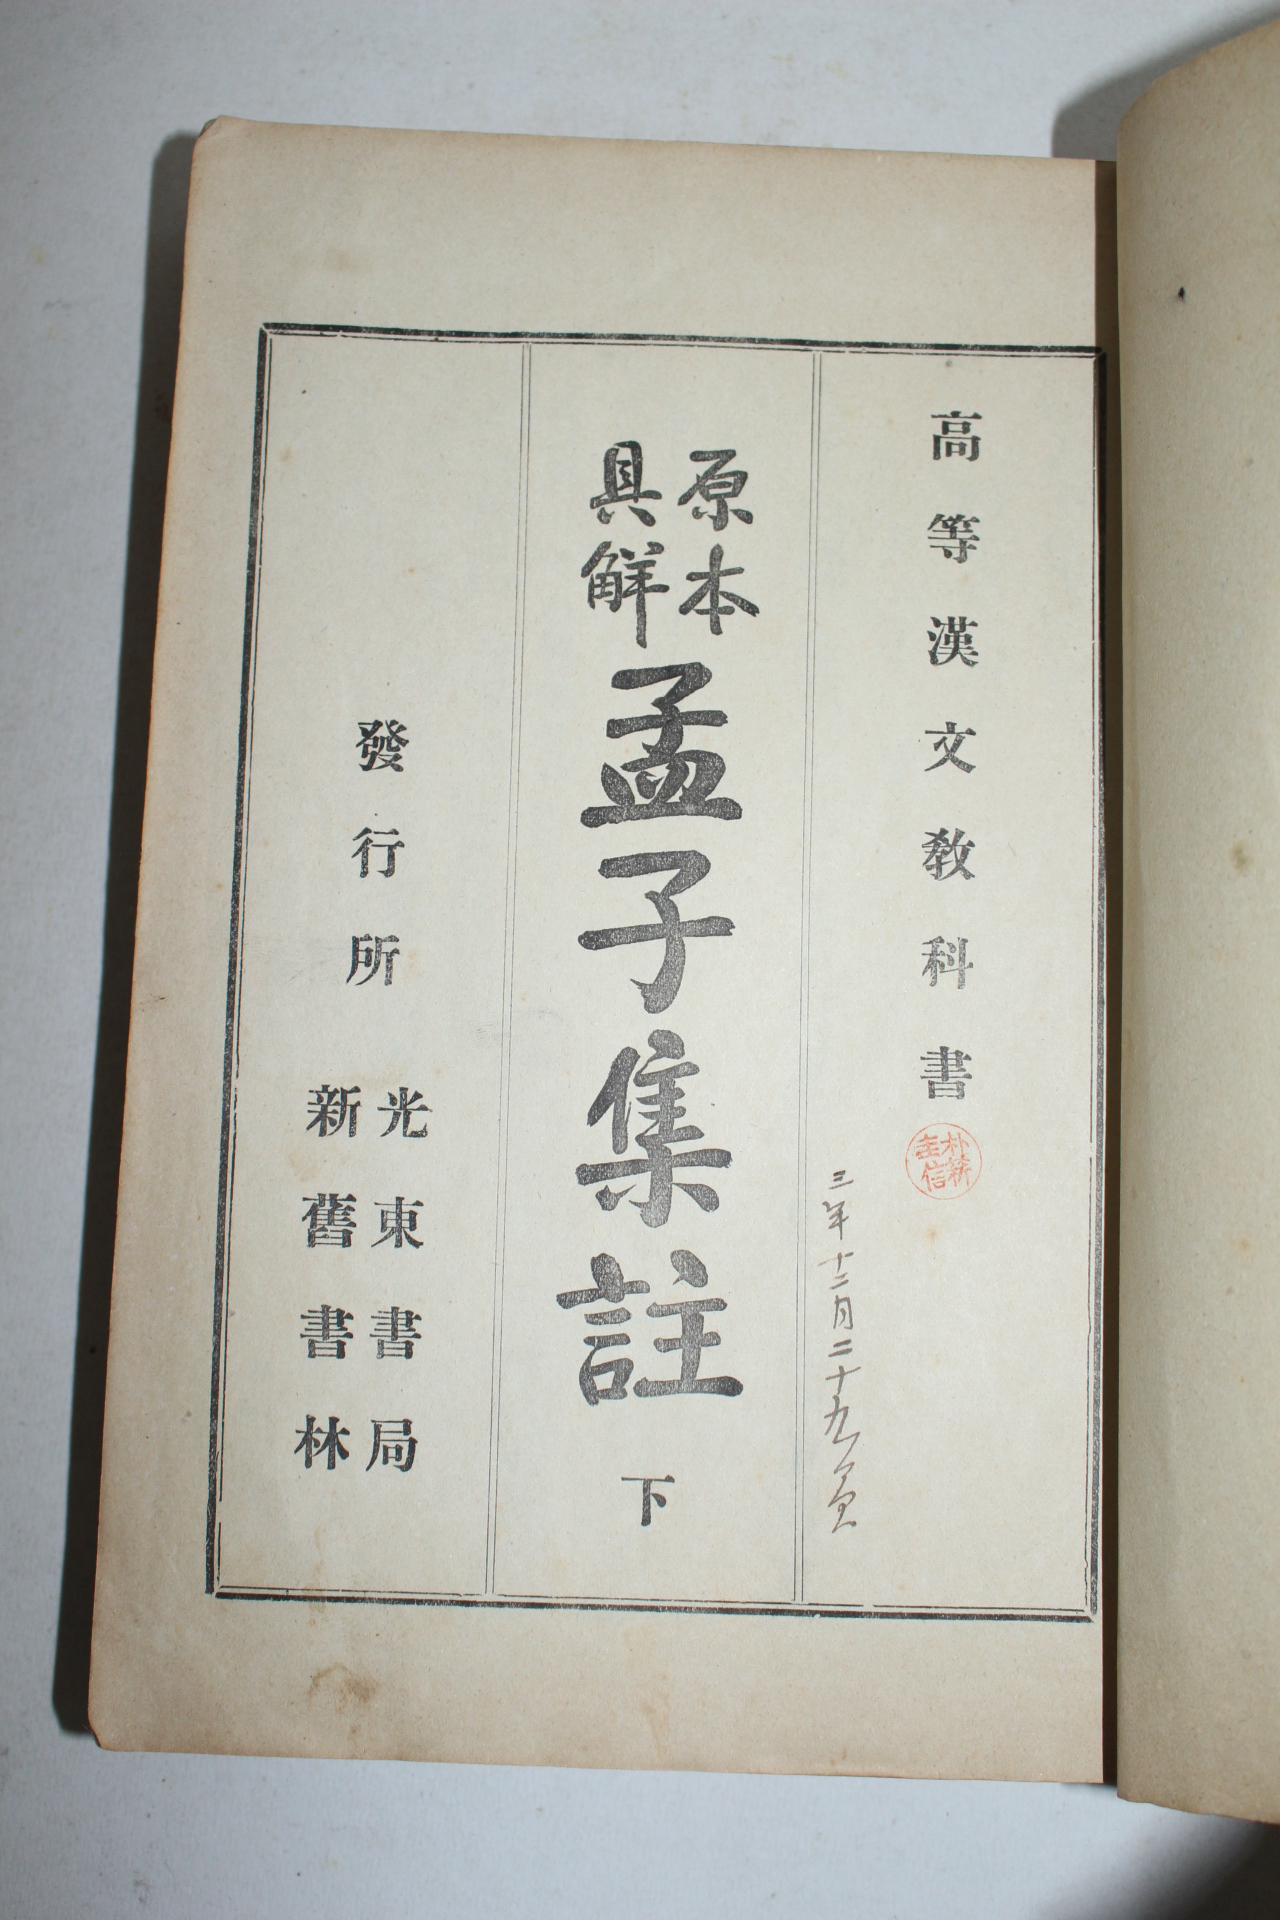 高等漢文敎科書
三年十二月二十九
原本
具解
孟子集註 下
發行所
光東書局
新舊書林